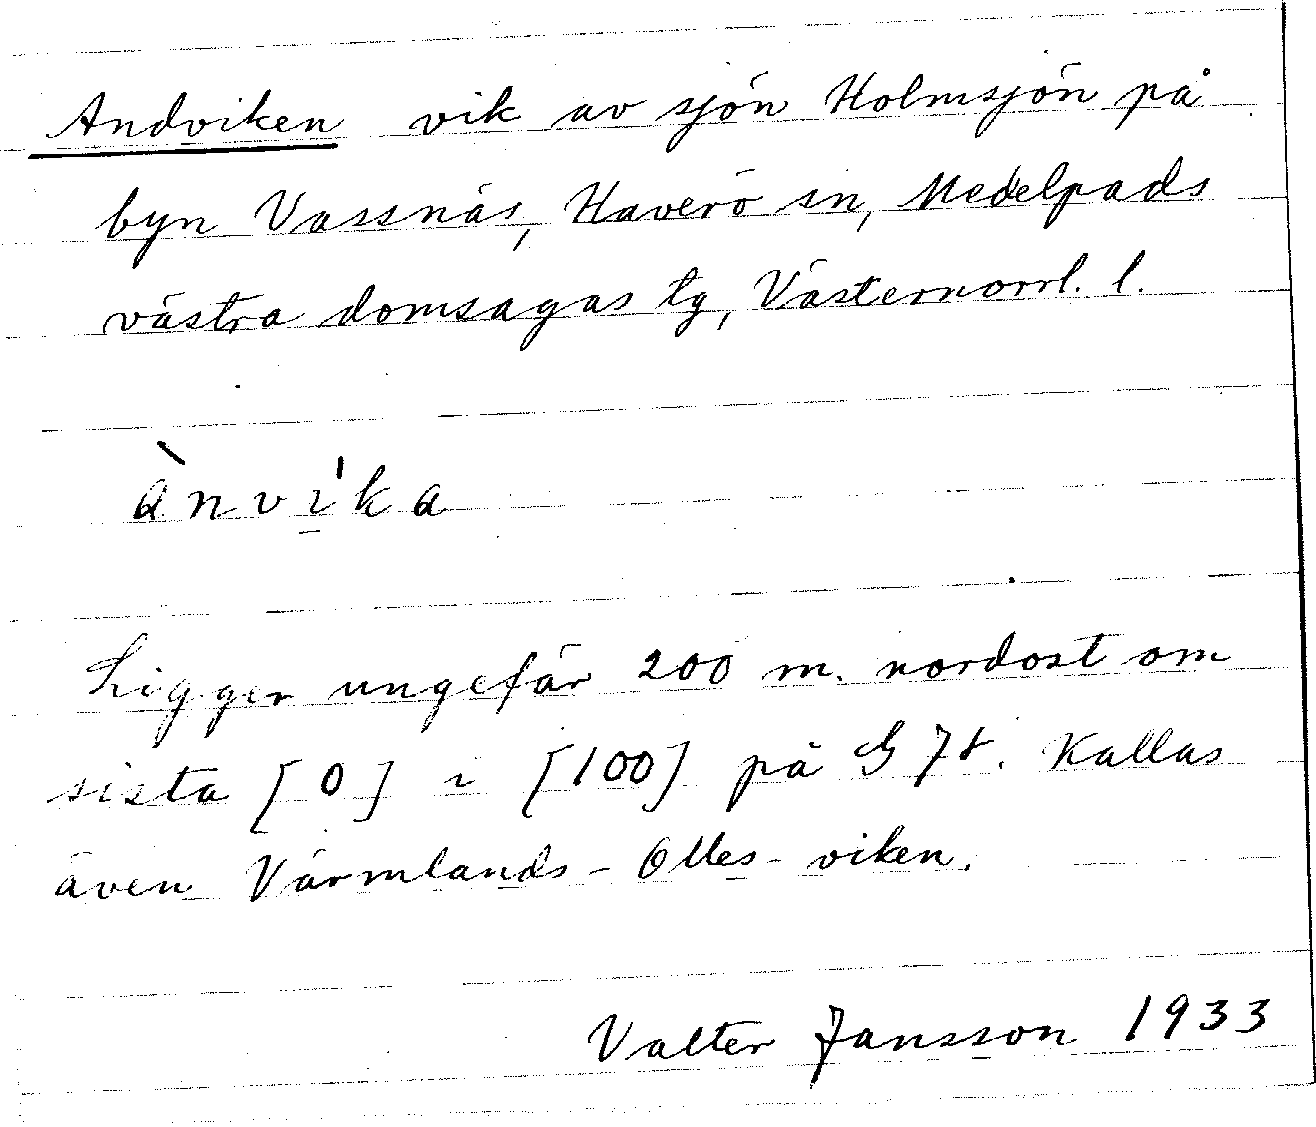 Andviken vik av sjön Holmsjön på
byn Vassnäs, Haverö sn, Medelpads
västra domsagas tg, Västernorrl. l.
ànvi̍ka
Ligger ungefär 200 m. nordost om
sista [0] i [100] på G 78. Kallas
även Värmlands-Olles-viken.
Valter Jansson 1933